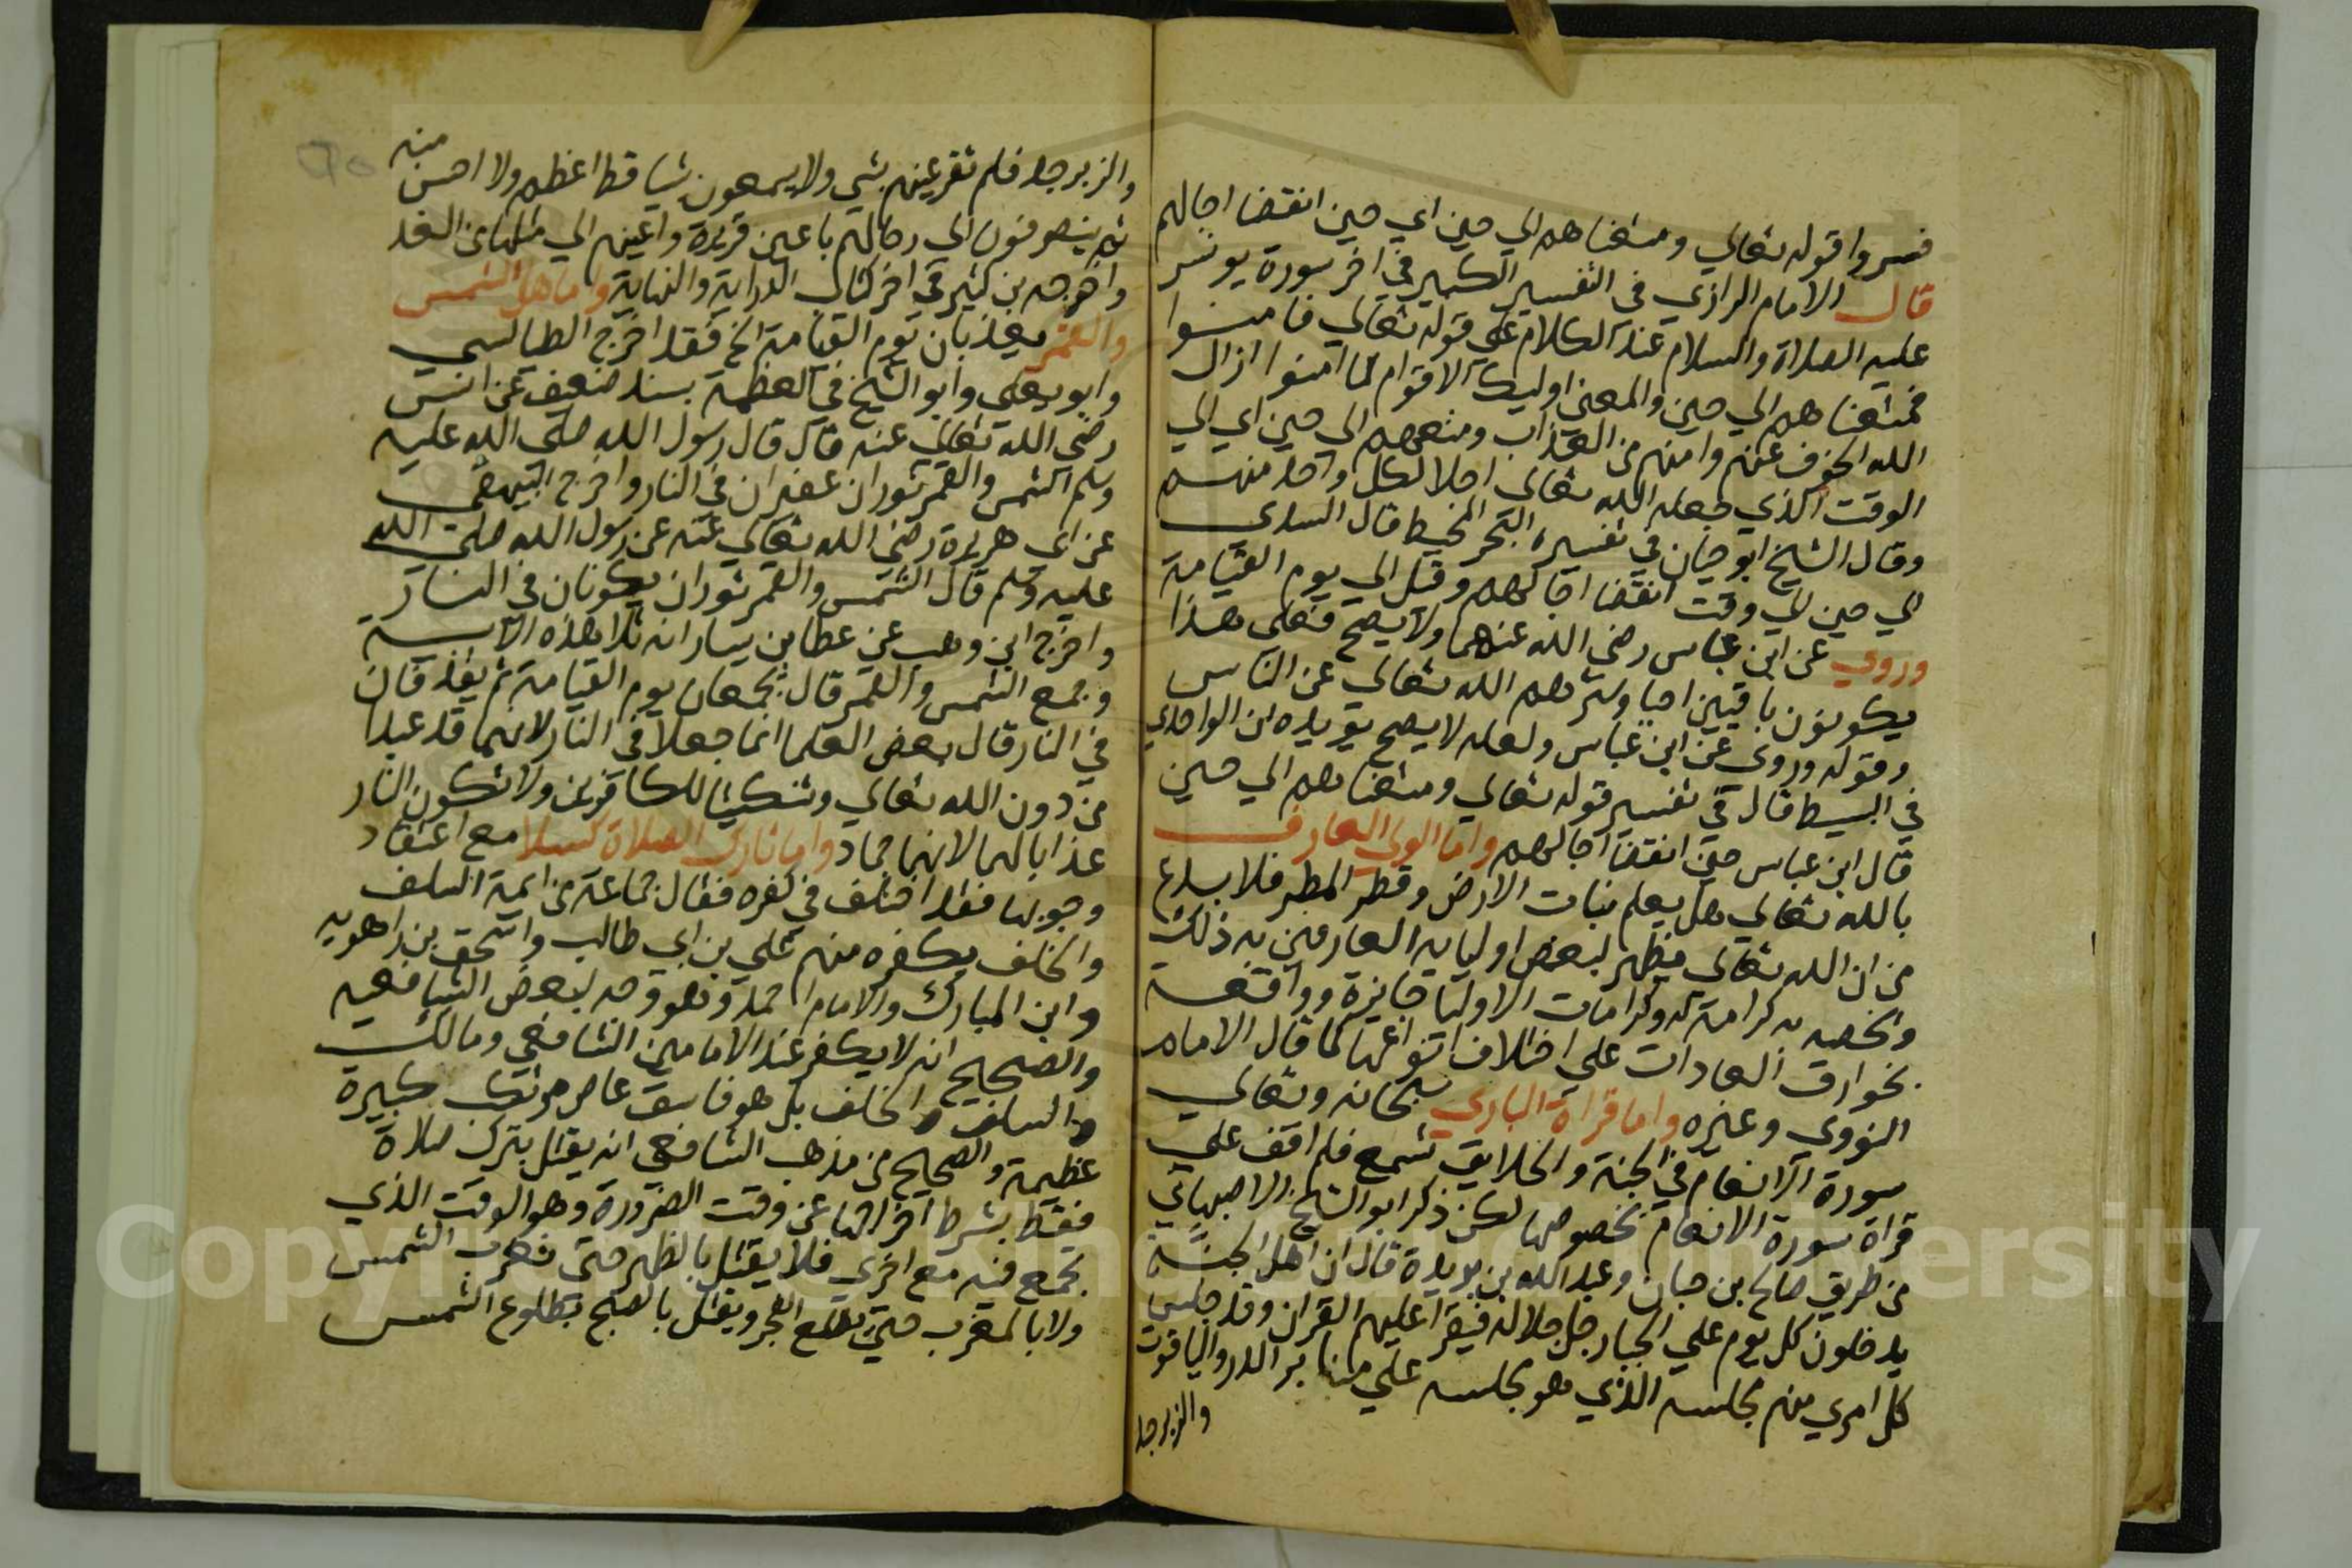 فسروا قوله تعالي ومتعناهم الي حين اي حين انقضا اجالهم
قال الامام الرازي في التفسير الكبير في اخر سورة يونس
عليه الصلاة والسلام عند الكلام على قوله تعالي فامنوا
فمتعناهم الي حين والمعنى اوليك الاقوام لما امنوا ازال
الله الخوف عنهم وامنهم من العذاب ومتعهم الي حين اي الي
الوقت الذي جعله الله تعالي اجلا لكل واحد منهم
وقال الشيخ ابو حيان في تفسيره البحر المحيط قال السدي
الي حين الي وقت انقضا اجالهم وقيل الي يوم القيامة
وروي عن ابن عباس رضي الله عنهما ولا يصح فعلى هذا
يكونون باقيين احيا وسترهم الله تعالي عن الناس
وقوله وروي عن ابن عباس ولعله لا يصح يويده ان الواحدي
في البسيط قال في تفسير قوله تعالي ومتعناهم الي حين
قال ابن عباس حين انقضا اجالهم واما الولي العارف
بالله تعالي هل يعلم نبات الارض وقطر المطر فلا بدع
من ان الله تعالي يظهر لبعض اوليايه العارفين به ذلك
ويخصه به كرامة له وكرامات الاوليا جايزة وواقعة
بخوارق العادات على اختلاف انواعها كما قال الامام
النووي وغيره واما قراة الباري سبحانه وتعالي
سورة الانعام في الجنة والخلايق تسمع فلم اقف علي
قراة سورة الانعام بخصوصها لكن ذكر ابو الشيخ الاصبهاني
من طريق صالح بن حبان وعبد الله بن بريدة قال ان اهل الجنة
يدخلون كل يوم علي الجبار جل جلاله فيقرا عليهم القران وقد جلس
كل امري منهم مجلسه الذي هو مجلسه علي منابر الدر والياقوت
والزبرجد
والزبرجد فلم تقر عينهم بشي ولا يسمعون شيا قط اعظم ولا احسن منه
ثم ينصرفون الي رحالهم باعين قريرة واعينهم الي مثلها من الغد
واخرجه بن كثير في اخر كتاب البداية والنهاية واما هل الشمس
والقمر يعذبان يوم القيامة الخ فقد اخرج الطيالسي
وابو يعلي وابو الشيخ في العظمة بسند ضعيف عن انس
رضي الله تعالي عنه قال قال رسول الله صلي الله عليه
وسلم الشمس والقمر ثوران عقيران في النار واخرج البيهقي
عن ابي هريرة رضي الله تعالي عنه عن رسول الله صلى الله
عليه وسلم قال الشمس والقمر ثوران يكونان في النار
واخرج ابن وهب عن عطا بن يسار انه تلا هذه الاية
وجمع الشمس والقمر قال يجمعان يوم القيامة ثم يقذفان
في النار قال بعض العلما انما جعلا في النار لانهما قد عبدا
من دون الله تعالي وتنكيتا للكافرين ولا تكون النار
عذابا لهما لانهما جماد واما تارك الصلاة كسلا مع اعتقاد
وجوبها فقد اختلف في كفره فقال جماعة من ايمة السلف
والخلف بكفره منهم علي بن ابي طالب واسحق بن راهويه
وابن المبارك والامام احمد وهو وجه لبعض الشافعيه
والصحيح انه لا يكفر عند الامامين الشافعي ومالك
والسلف والخلف بل هو فاسق عاص مرتكب كبيرة
عظيمة والصحيح من مذهب الشافعي انه يقتل بترك صلاة
فقط بشرط اخراجها عن وقت الضرورة وهو الوقت الذي
تجمع فيه مع اخري فلا يقتل بالظهر حتى تغرب الشمس
ولا بالمغرب حتي يطلع الفجر ويقتل بالصبح بطلوع الشمس